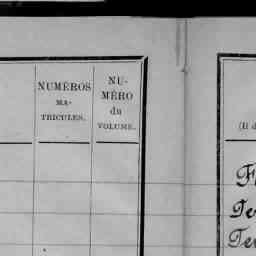 NUMÉROS
MA-
TRICULES.
NU-
MÉRO
du
VOLUME.
(Il d